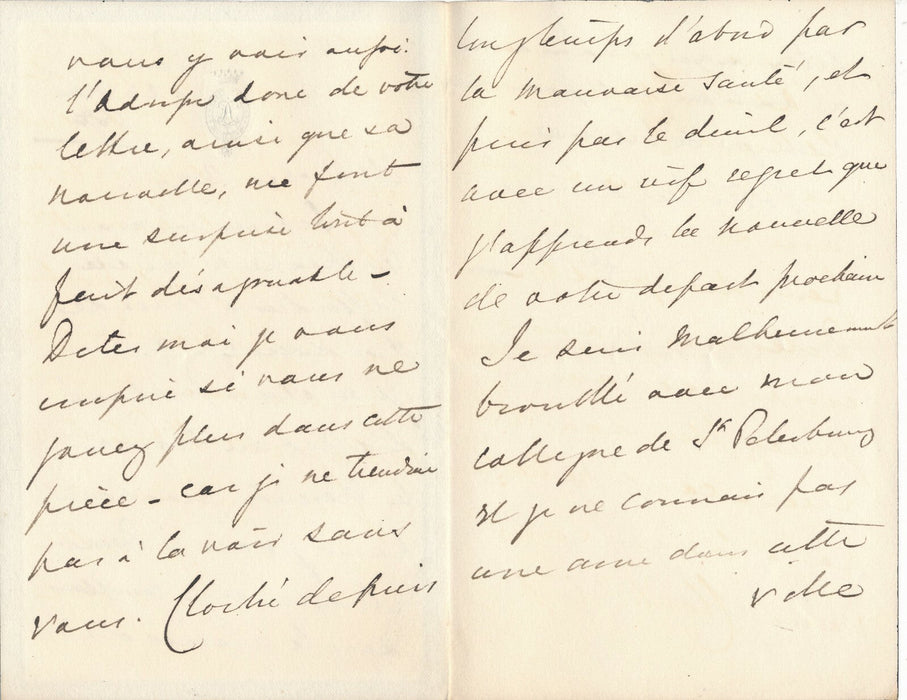 vous y voir aussi.
L'adresse donc de votre
lettre, ainsi que sa
nouvelle, me font
une surprise tout à
fait désagréable -
Dites moi je vous
supplie si vous ne
jouez plus dans cette
pièce - car je ne tiendrai
pas à la voir sans
vous. Cloché depuis
longtemps d'abord par
la mauvaise santé, et
puis par le deuil, c'est
avec un vif regret que
j'apprends la nouvelle
de votre depart prochain
Je suis malheureusement
brouillé avec mon
collegue de St Petersburg
et je ne connais pas
une ame dans cette
ville